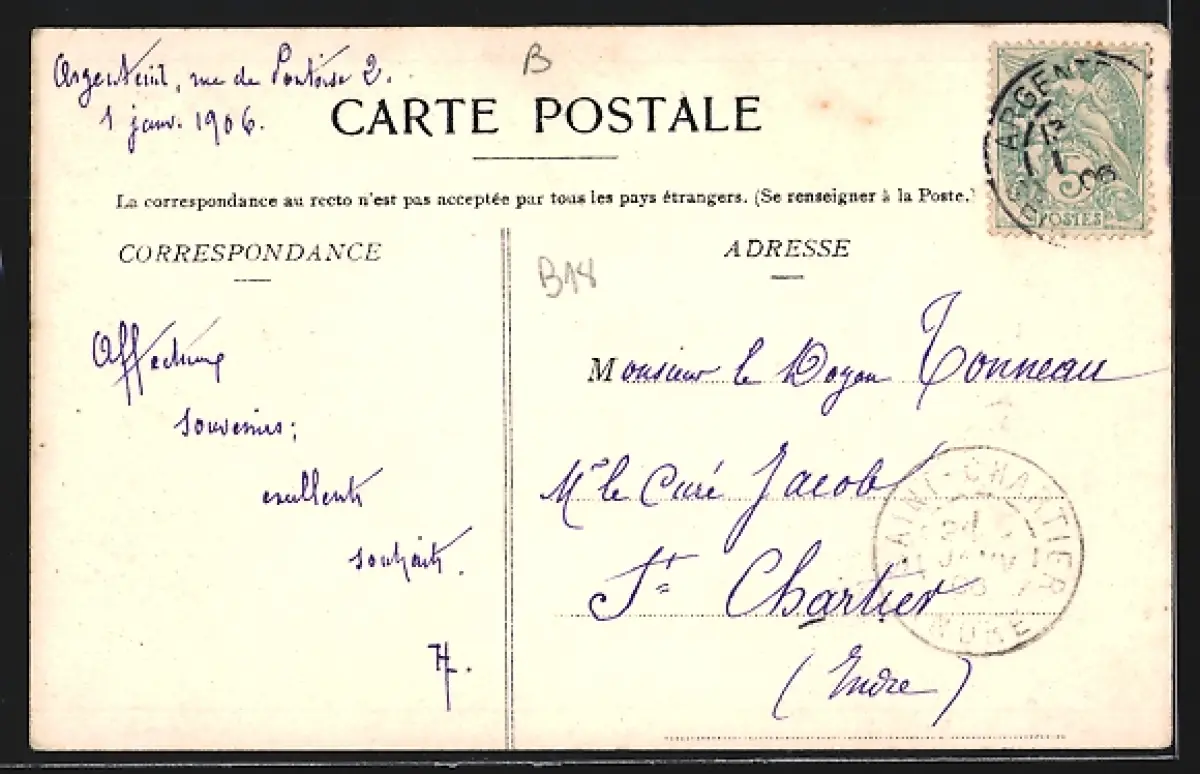 Argenteuil, rue de Pontoise 2.
1 janv. 1906.
B
CARTE POSTALE
La correspondance au recto n'est pas acceptée par tous les pays étrangers. (Se renseigner à la Poste.)
ARGENT
1
06
5
POSTES
CORRESPONDANCE
ADRESSE
B18
Affectueux
souvenirs;
excellents
souhaits.
H.
Monsieur le Doyen Tonneau
Mr le Curé Jacob
St Chartier
(Indre)
SAINT-CHARTIER
JANV
06
INDRE